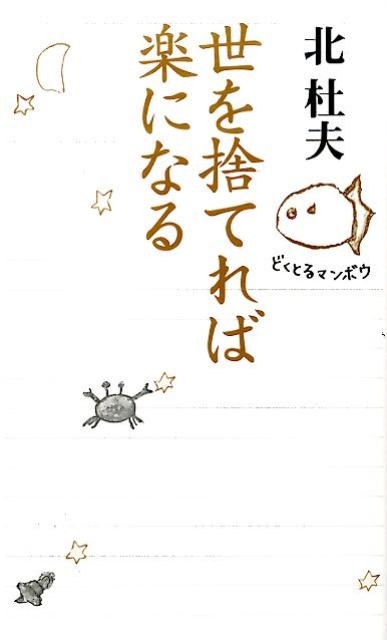 北 杜夫
どくとるマンボウ
世を捨てれば
楽になる